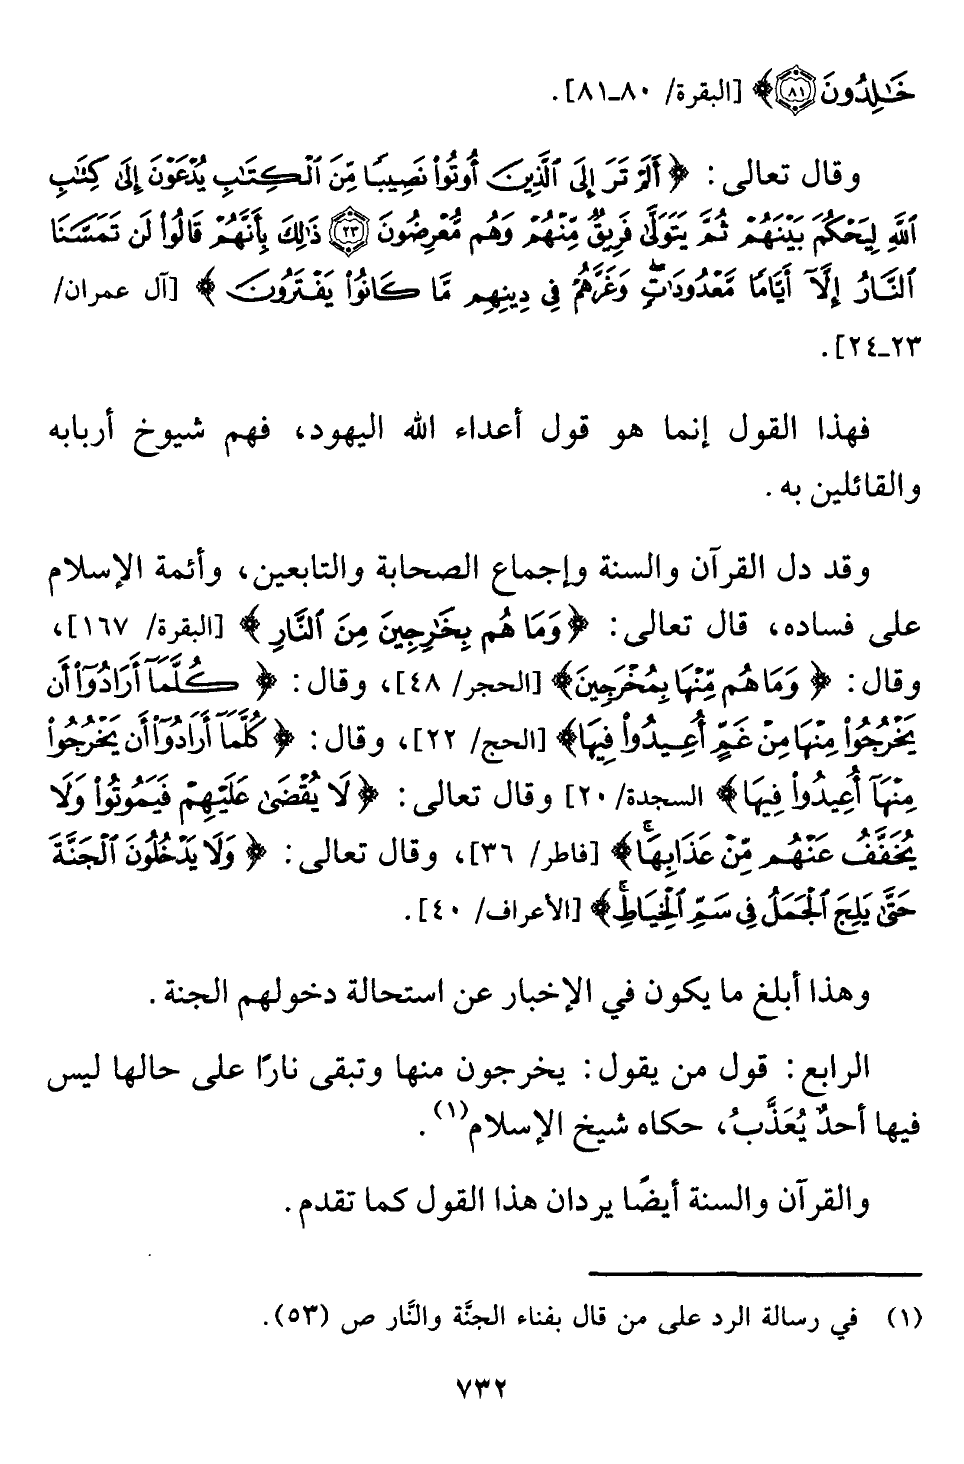 خَٰلِدُونَ ﴿٨١﴾﴾ [البقرة/ ٨٠ـ٨١].
وقال تعالى: ﴿أَلَمْ تَرَ إِلَى ٱلَّذِينَ أُوتُوا۟ نَصِيبًا مِّنَ ٱلْكِتَٰبِ يُدْعَوْنَ إِلَىٰ كِتَٰبِ
ٱللَّهِ لِيَحْكُمَ بَيْنَهُمْ ثُمَّ يَتَوَلَّىٰ فَرِيقٌ مِّنْهُمْ وَهُم مُّعْرِضُونَ ﴿٢٣﴾ ذَٰلِكَ بِأَنَّهُمْ قَالُوا۟ لَن تَمَسَّنَا
ٱلنَّارُ إِلَّآ أَيَّامًا مَّعْدُودَٰتٍۖ وَغَرَّهُمْ فِى دِينِهِم مَّا كَانُوا۟ يَفْتَرُونَ﴾ [آل عمران/
٢٣ـ٢٤].
فهذا القول إنما هو قول أعداء الله اليهود، فهم شيوخ أربابه
والقائلين به.
وقد دل القرآن والسنة وإجماع الصحابة والتابعين، وأئمة الإسلام
على فساده، قال تعالى: ﴿وَمَا هُم بِخَٰرِجِينَ مِنَ ٱلنَّارِ﴾ [البقرة/ ١٦٧]،
وقال: ﴿وَمَا هُم مِّنْهَا بِمُخْرَجِينَ﴾ [الحجر/ ٤٨]، وقال: ﴿كُلَّمَآ أَرَادُوٓا۟ أَن
يَخْرُجُوا۟ مِنْهَا مِنْ غَمٍّ أُعِيدُوا۟ فِيهَا﴾ [الحج/ ٢٢]، وقال: ﴿كُلَّمَآ أَرَادُوٓا۟ أَن يَخْرُجُوا۟
مِنْهَآ أُعِيدُوا۟ فِيهَا﴾ السجدة/٢٠] وقال تعالى: ﴿لَا يُقْضَىٰ عَلَيْهِمْ فَيَمُوتُوا۟ وَلَا
يُخَفَّفُ عَنْهُم مِّنْ عَذَابِهَاۚ﴾ [فاطر/ ٣٦]، وقال تعالى: ﴿وَلَا يَدْخُلُونَ ٱلْجَنَّةَ
حَتَّىٰ يَلِجَ ٱلْجَمَلُ فِى سَمِّ ٱلْخِيَاطِۚ﴾ [الأعراف/ ٤٠].
وهذا أبلغ ما يكون في الإخبار عن استحالة دخولهم الجنة.
الرابع: قول من يقول: يخرجون منها وتبقى نارًا على حالها ليس
فيها أحدٌ يُعَذَّبُ، حكاه شيخ الإسلام(١).
والقرآن والسنة أيضًا يردان هذا القول كما تقدم.
(١) في رسالة الرد على من قال بفناء الجنَّة والنَّار ص (٥٣).
٧٣٢